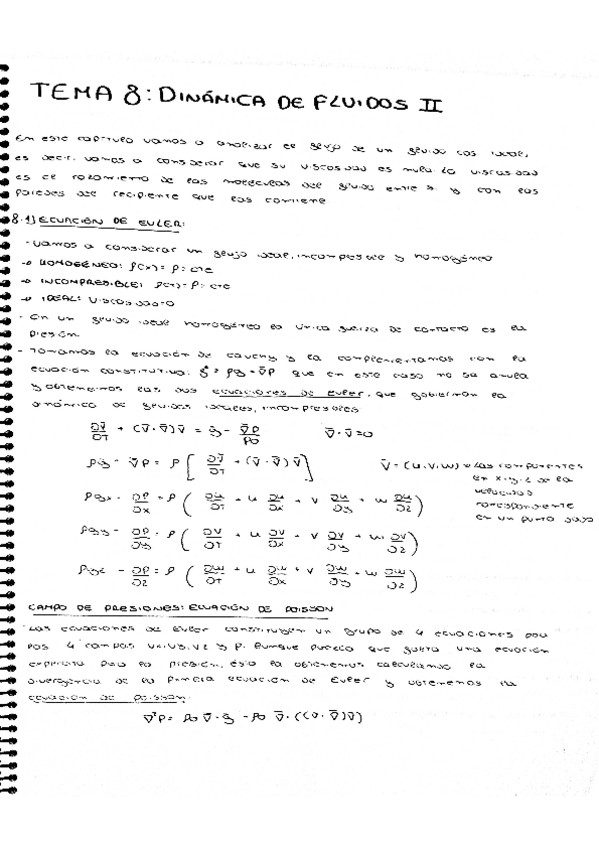 TEMA 8: DINÁMICA DE FLUIDOS II
En este capítulo vamos a analizar el flujo de un fluido casi ideal,
es decir, vamos a considerar que su viscosidad es nula. La viscosidad
es el rozamiento de las moléculas del fluido entre sí y con las
paredes del recipiente que las contiene
8.1) ECUACIÓN DE EULER:
- Vamos a considerar un flujo ideal, incompresible y homogéneo
→ HOMOGÉNEO: ρ(x) = ρ = cte
→ INCOMPRESIBLE: ρ(t) = ρ = cte
→ IDEAL: Viscosidad = 0
- En un fluido ideal homogéneo la única fuerza de contacto es la
presión
- Tomamos la ecuación de Cauchy y la complementamos con la
ecuación constitutiva: f* = ρg - ∇P que en este caso no se anula
y obtenemos las dos ecuaciones de Euler, que gobiernan la
dinámica de fluidos ideales, incompresibles
∂v̄/∂t + (v̄·∇̄)v̄ = ḡ - ∇̄P/ρ0    ∇̄·v̄ = 0
ρḡ - ∇̄P = ρ [ ∂v̄/∂t + (v̄·∇̄)v̄ ]    v̄ = (u, v, w) = las componentes
en x, y, z de la
velocidad
correspondiente
en un punto dado
ρgx - ∂P/∂x = ρ ( ∂u/∂t + u ∂u/∂x + v ∂u/∂y + w ∂u/∂z )
ρgy - ∂P/∂y = ρ ( ∂v/∂t + u ∂v/∂x + v ∂v/∂y + w ∂v/∂z )
ρgz - ∂P/∂z = ρ ( ∂w/∂t + u ∂w/∂x + v ∂w/∂y + w ∂w/∂z )
CAMPO DE PRESIONES: ECUACIÓN DE POISSON
Las ecuaciones de Euler constituyen un grupo de 4 ecuaciones para
los 4 campos vx, vy, vz y P. Aunque parezca que falta una ecuación
explícita para la presión, ésta la obtenemos calculando la
divergencia de la primera ecuación de Euler y obtenemos la
ecuación de Poisson:
∇²P = ρ0 ∇̄·ḡ - ρ0 ∇̄·((v̄·∇̄)v̄)